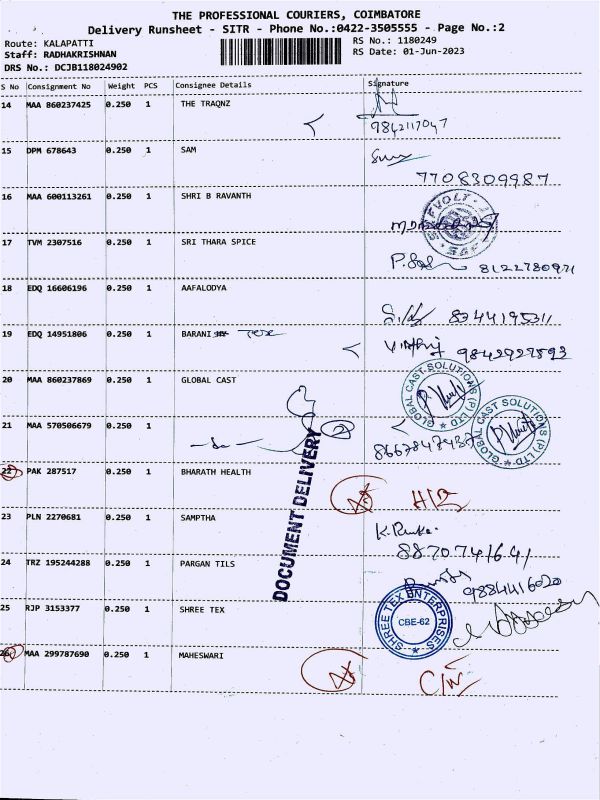 THE PROFESSIONAL COURIERS, COIMBATORE
Delivery Runsheet - SITR - Phone No.:0422-3505555 - Page No.:2
Route: KALAPATTI RS No.: 1180249
Staff: RADHAKRISHNAN RS Date: 01-Jun-2023
DRS No.: DCJB118024902
S No Consignment No Weight PCS Consignee Details Signature
14 MAA 860237425 0.250 1 THE TRAQNZ
9842117047
15 DPM 678643 0.250 1 SAM
7708309987
16 MAA 600113261 0.250 1 SHRI B RAVANTH
17 TVM 2307516 0.250 1 SRI THARA SPICE
8122780971
18 EDQ 16606196 0.250 1 AAFALODYA
8344195311
19 EDQ 14951806 0.250 1 BARANI Tex
9842927893
20 MAA 860237869 0.250 1 GLOBAL CAST
GLOBAL CAST SOLUTIONS (P) LTD
21 MAA 570506679 0.250 1 2
GLOBAL CAST SOLUTIONS (P) LTD
22 PAK 287517 0.250 1 BHARATH HEALTH
DOCUMENT DELIVERY
23 PLN 2270681 0.250 1 SAMPTHA
8870741641
24 TRZ 195244288 0.250 1 PARGAN TILS
9884416020
25 RJP 3153377 0.250 1 SHREE TEX
SHREE TEX ENTERPRISES
CBE-62
26 MAA 299787690 0.250 1 MAHESWARI